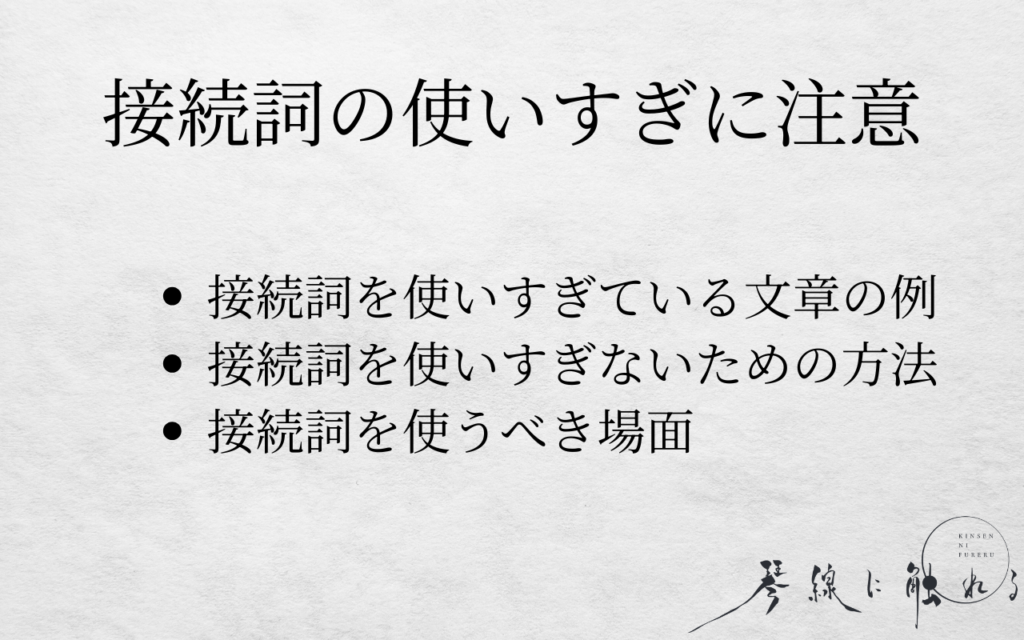 接続詞の使いすぎに注意
• 接続詞を使いすぎている文章の例
• 接続詞を使いすぎないための方法
• 接続詞を使うべき場面
KINSEN
NI
FURERU
琴線に触れる